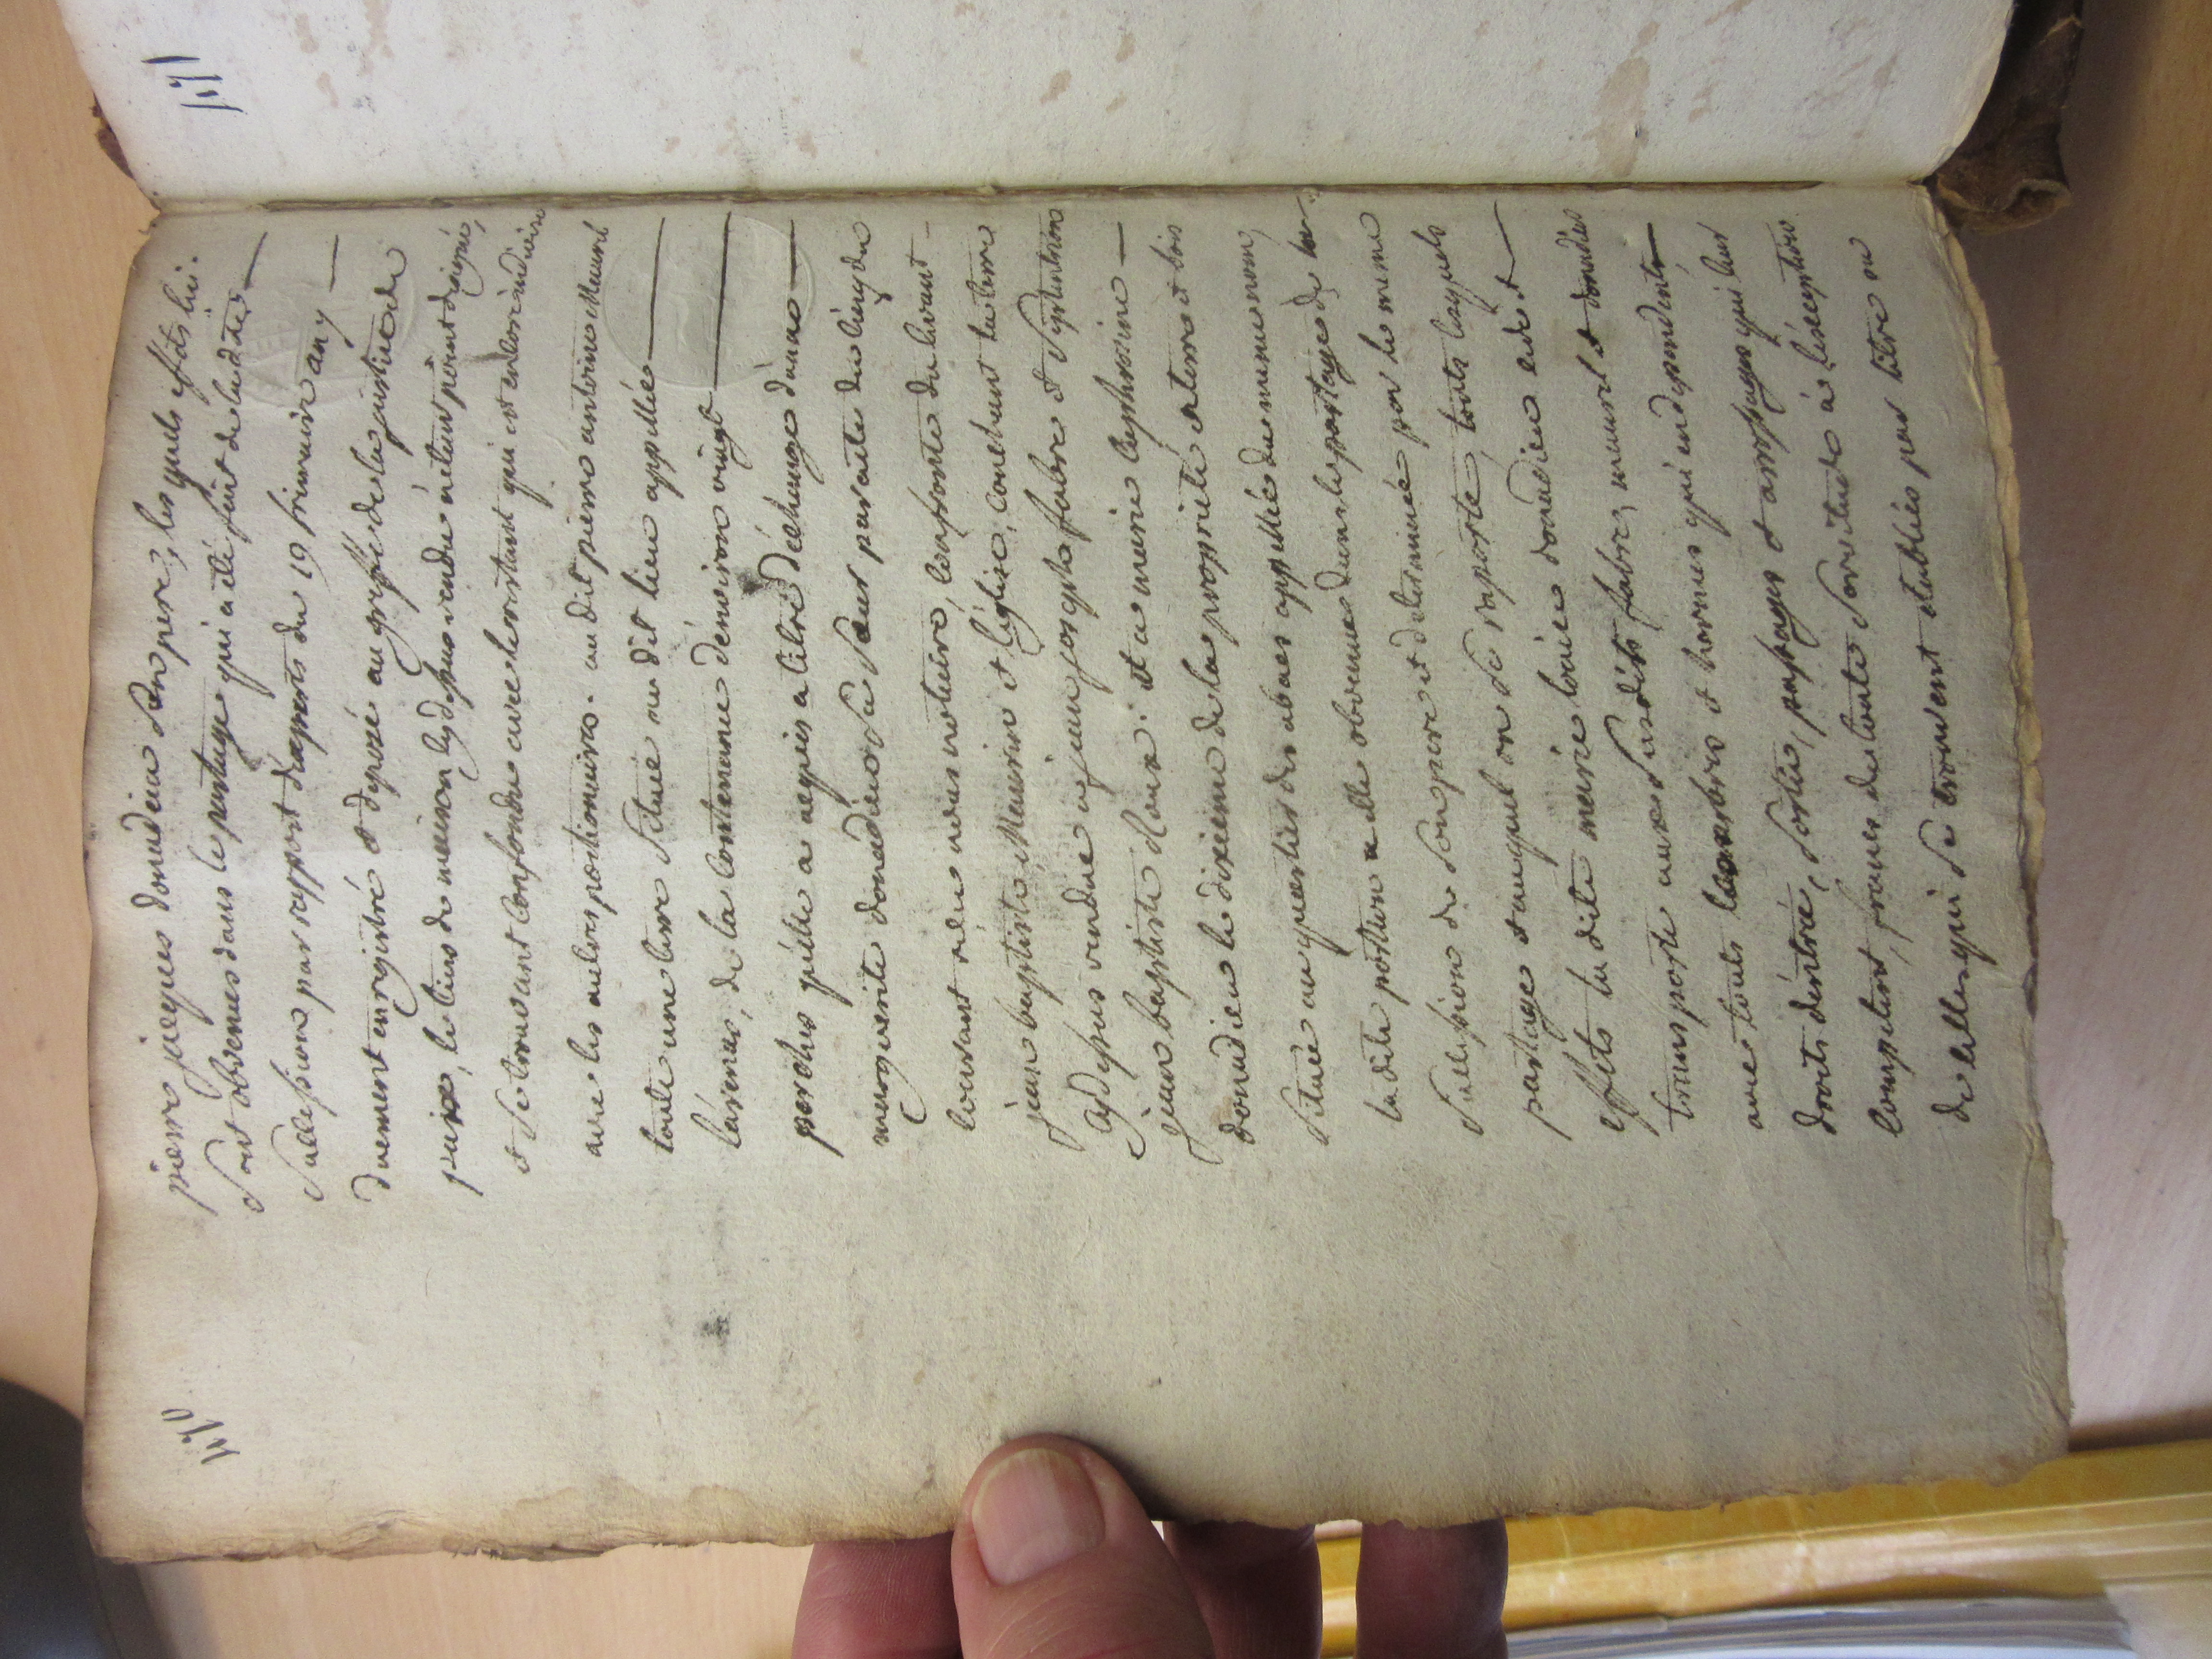 pierre jacques donadieu son pere, les quels effets lui
sont obvenus dans le partage qui a été fait de ladite
sucession par rapport d'experts du 19 frimaire an 9
duement enregistré et deposé au greffe de la justice de
paix, le tiers de maison cy dessus vendu n'étant point designé,
et se trouvant confondu avec le restant qui est encore indivis
avec les autres portionnaires. audit pierre antoine Maurel
toute une terre située au dit lieu appellée
de la contenance d'environ vingt
perches qu'elle a acquis a titre d'échange d'anne
marguerite donadieu sa sœur par acte du cinq du
courant reçu nous notaire, confronte du levant
jean baptiste Maurin et l'église, couchant la terre
cy dessus vendue a jean joseph fabre et septentrion
jean baptiste Roux. et a marie euphrosine
donadieu le dixieme de la proprieté en terre et bois
située au quartier des abacs appellée du meme nom,
la dite portion a elle obvenue dans le partage de la
succession de son pere et determinée par le meme
partage auquel on se raporte, touts lesquels
effets la dite marie louise donadieu cede et
transporte aux susdits fabre, maurel et donadieu
avec touts leurs droits et hormes qui en dependent,
droits d'entrée, sortie, passages et arrosages qui leur
competent, francs de toute servitude à l'exception
de celles qui se trouvent etablies par titre ou